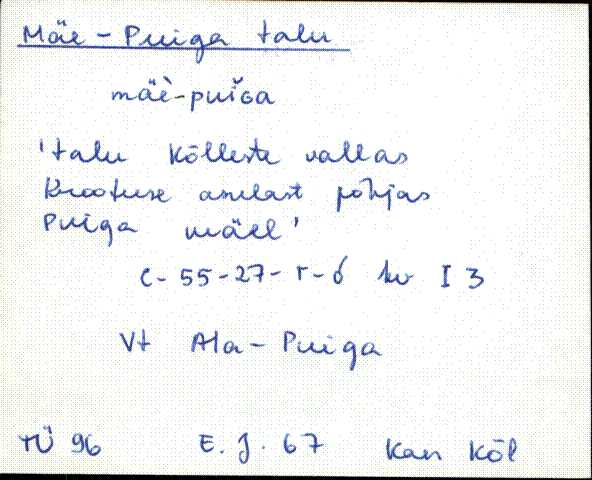 Mäe-Puiga talu
mäè-puiGa
'talu Kõlleste vallas
Krootuse asulast põhjas
Puiga mäel'
C-55-27-Г-б kv I 3
Vt Ala-Puiga
TÜ 96 E. J. 67 Kan Kõl